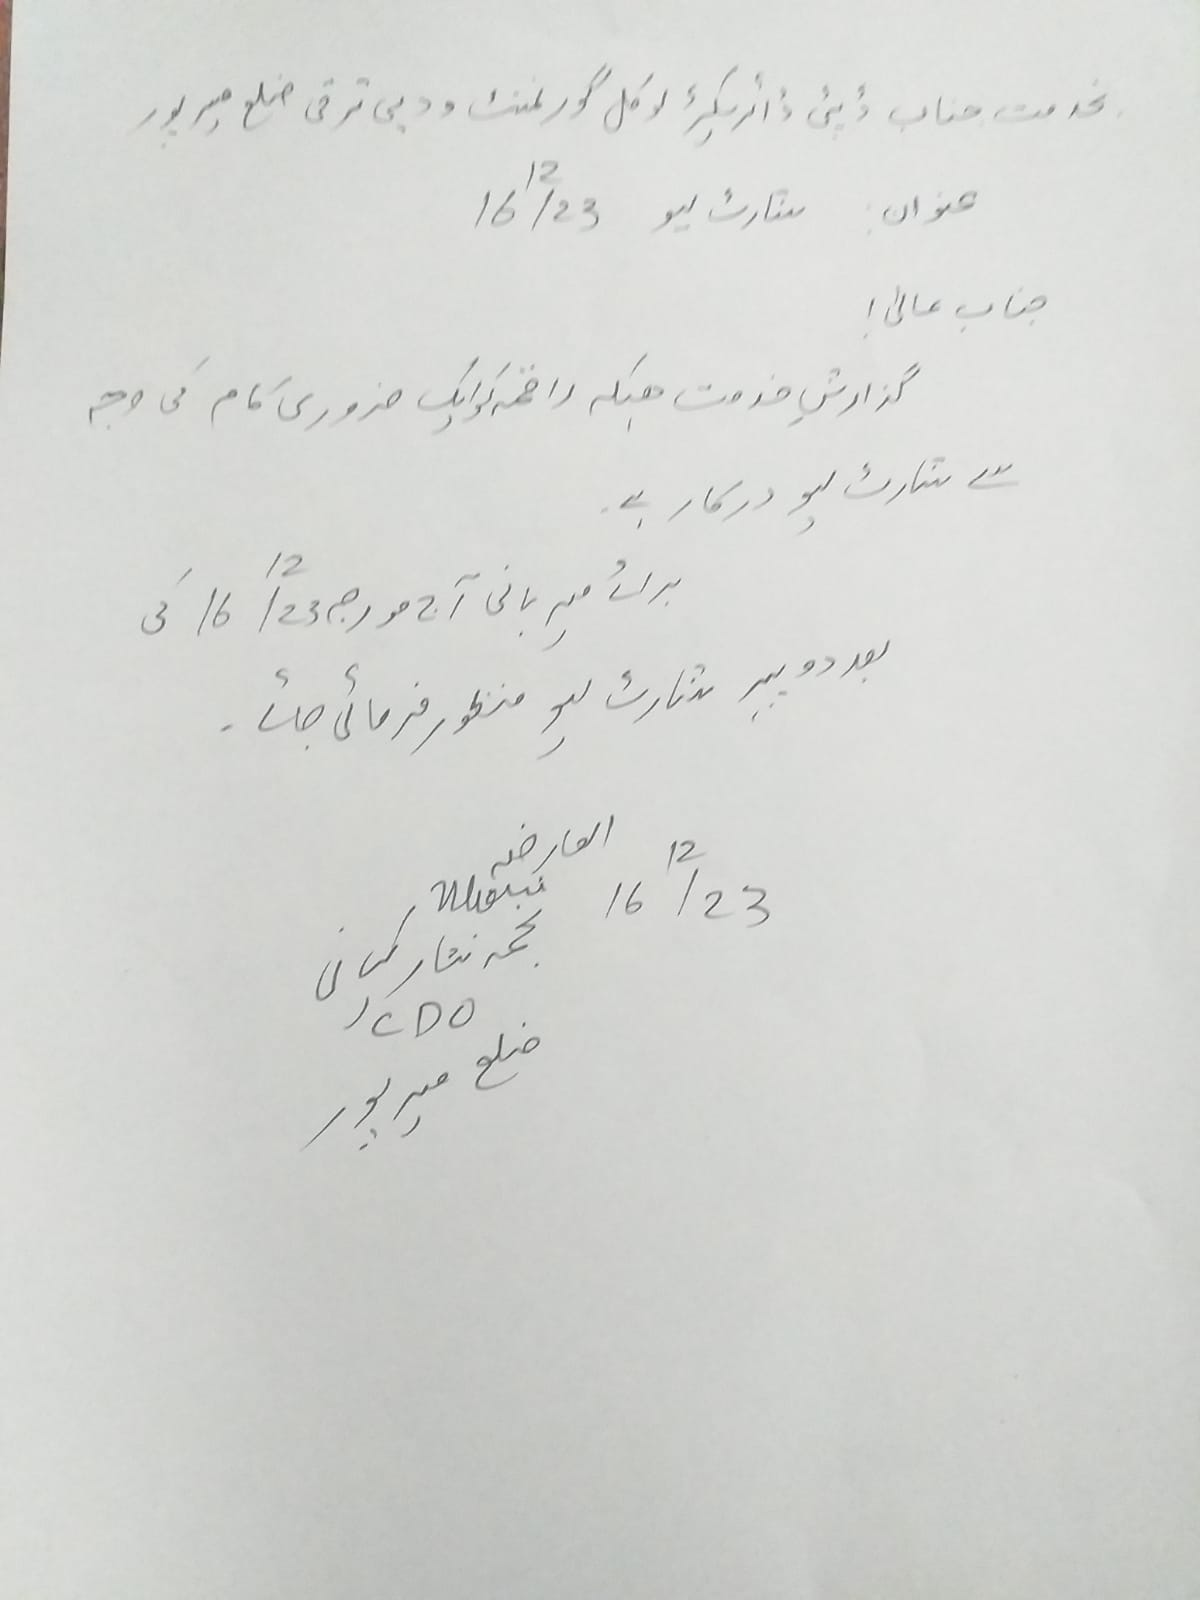 بخدمت جناب ڈپٹی ڈائریکٹر لوکل گورنمنٹ و دیہی ترقی ضلع میرپور
عنوان: شارٹ لیو 16/12/23
جناب عالی!
گزارش خدمت ہیکہ راقمہ کو ایک ضروری کام کی وجہ
سے شارٹ لیو درکار ہے۔
برائے مہربانی آج مورخہ 16/12/23 کی
بعد دوپہر شارٹ لیو منظور فرمائی جائے۔
العارضہ
16/12/23
نجمہ نثار کیانی
CDO
ضلع میرپور